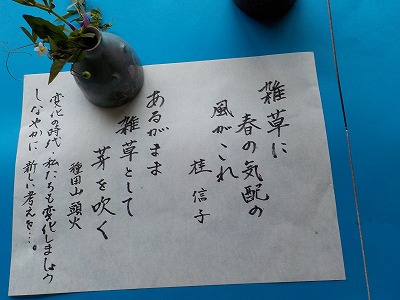 雑草に
春の気配の
風がこれ
桂信子
あるがまま
雑草として
芽を吹く
種田山頭火
変化の時代、私たちも変化しましょう
しなやかに新しい考えを…。